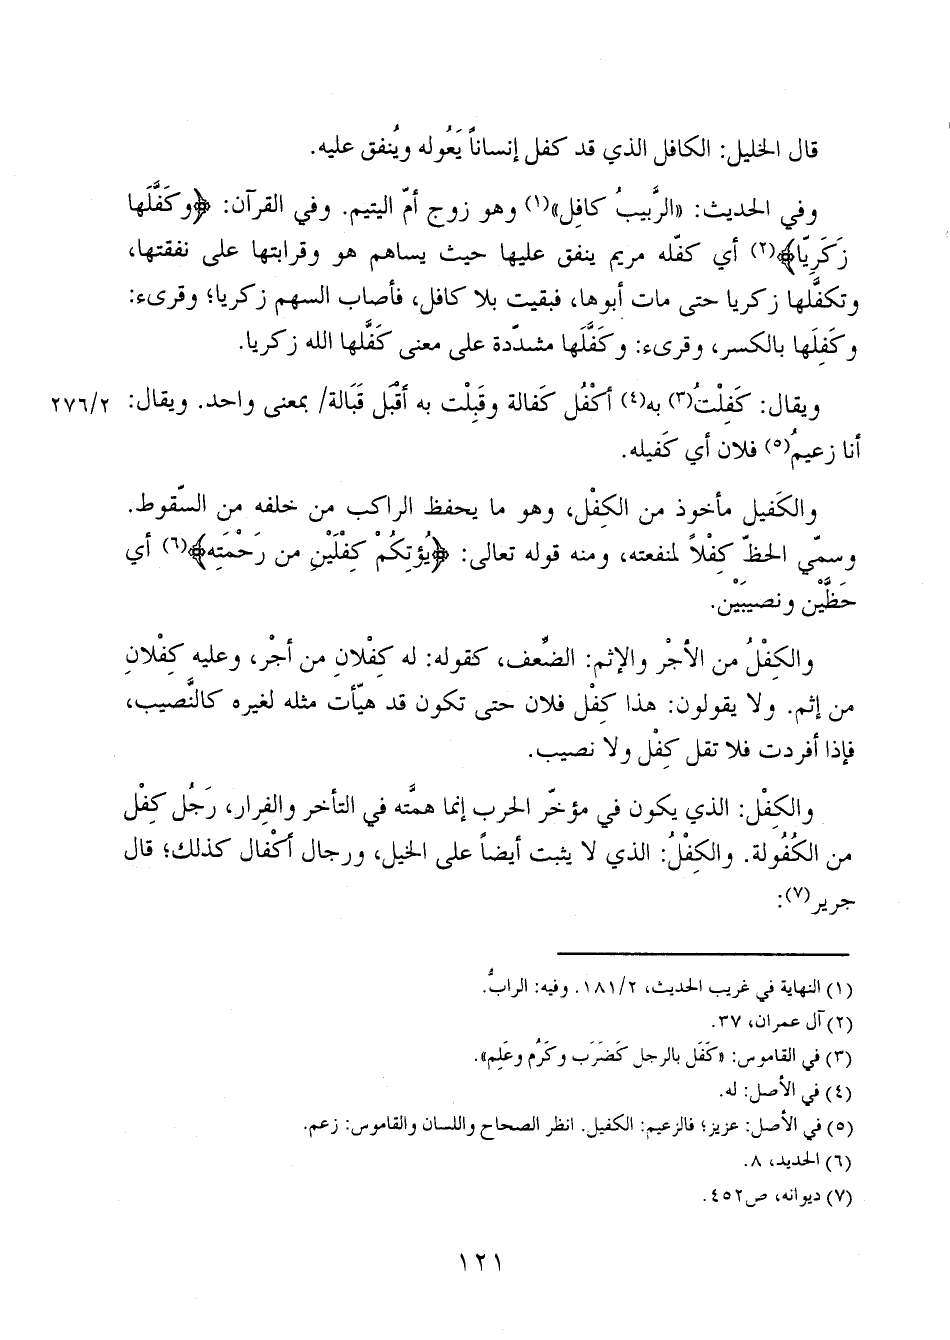 قال الخليل: الكافل الذي قد كفل إنساناً يَعُوله ويُنفق عليه.
وفي الحديث: «الرَّبيبُ كافِل»(١) وهو زوج أمّ اليتيم. وفي القرآن: ﴿وكَفَّلَها
زكَرِيّا﴾(٢) أي كفّله مريم ينفق عليها حيث يساهم هو وقرابتها على نفقتها،
وتكفَّلها زكريا حتى مات أبوها، فبقيت بلا كافل، فأصاب السهم زكريا؛ وقرىء:
وكَفِلَها بالكسر، وقرىء: وكَفَّلَها مشدّدة على معنى كَفَّلها الله زكريا.
ويقال: كَفِلْتُ(٣) به(٤) أكْفُل كَفالة وقَبِلْت به أقْبَل قَبَالة/ بمعنى واحد. ويقال: ٢٧٦/٢
أنا زعيمُ(٥) فلان أي كَفيله.
والكَفيل مأخوذ من الكِفْل، وهو ما يحفظ الراكب من خلفه من السّقوط.
وسمّي الحظّ كِفْلاً لمنفعته، ومنه قوله تعالى: ﴿يُؤتِكُمْ كِفْلَيْنِ من رَحْمَتِه﴾(٦) أي
حَظَّيْن ونصيبَيْن.
والكِفْلُ من الأجْر والإثم: الضِّعف، كقوله: له كِفْلانِ من أجْر، وعليه كِفْلانِ
من إثم. ولا يقولون: هذا كِفْل فلان حتى تكون قد هيّأت مثله لغيره كالنَّصيب،
فإذا أفردت فلا تقل كِفْل ولا نصيب.
والكِفْل: الذي يكون في مؤخّر الحرب إنما همتَّه في التأخر والفِرار، رَجُل كِفْل
من الكُفُولة. والكِفْلُ: الذي لا يثبت أيضاً على الخيل، ورجال أكْفال كذلك؛ قال
جرير(٧):
(١) النهاية في غريب الحديث، ١٨١/٢. وفيه: الرابُّ.
(٢) آل عمران، ٣٧.
(٣) في القاموس: «كَفَل بالرجل كَضَرَب وكَرُم وعَلِم».
(٤) في الأصل: له.
(٥) في الأصل: عزيز؛ فالزعيم: الكفيل. انظر الصحاح واللسان والقاموس: زعم.
(٦) الحديد، ٨.
(٧) ديوانه، ص٤٥٢.
١٢١